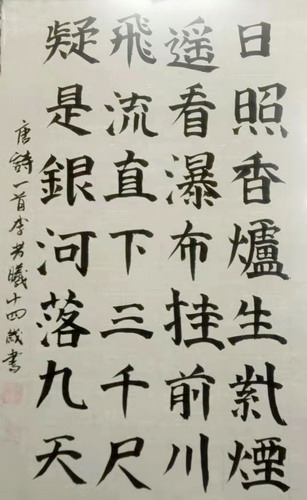 日照香爐生紫煙
遥看瀑布挂前川
飛流直下三千尺
疑是銀河落九天
唐詩一首李曦十四歲書